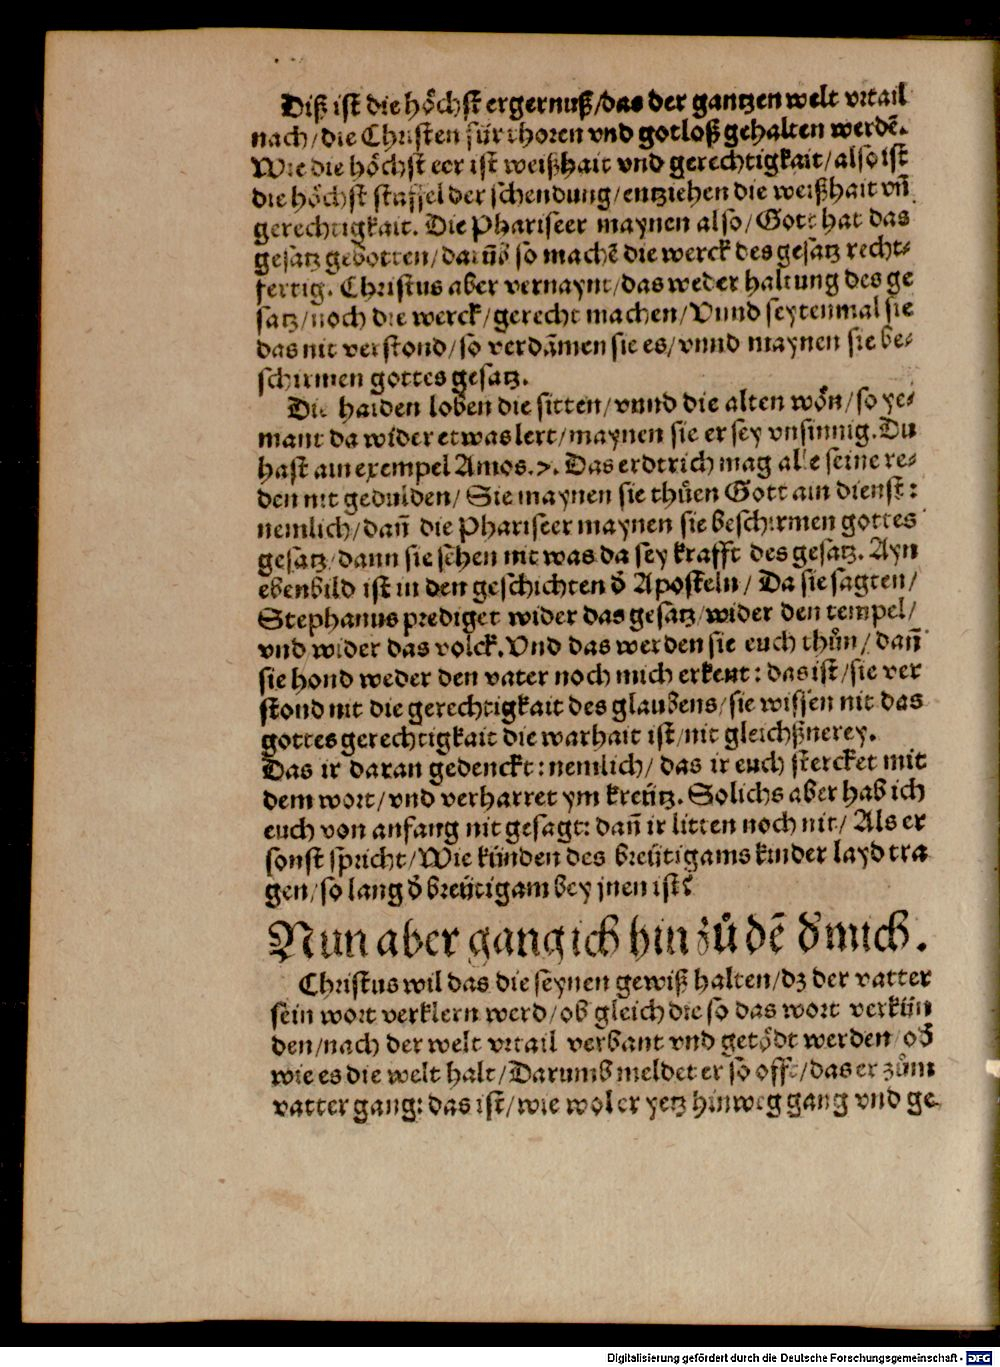 Diß ist die hoͤchst ergernuß/das der gantzen welt vrtail
nach/die Christen für thoren vnd gotloß gehalten werdē.
Wie die hoͤchst eer ist weißhait vnd gerechtigkait/also ist
die hoͤchst staffel der schendung/entziehen die weißhait vñ
gerechtigkait. Die Phariseer maynen also/Gott hat das
gesatz gebotten/darūb so machē die werck des gesatz recht-
fertig. Christus aber vernaynt/das weder haltung des ge
satz/noch die werck/gerecht machen/Vnnd seytenmal sie
das nit verstond/so verdāmen sie es/vnnd maynen sie be-
schirmen gottes gesatz.
Die haiden loben die sitten/vnnd die alten woͤn/so ye-
mant da wider etwas lert/maynen sie er sey vnsinnig. Du
hast ain exempel Amos.7. Das erdtrich mag alle seine re-
den nit gedulden/ Sie maynen sie thuͤen Gott ain dienst:
nemlich/dañ die Phariseer maynen sie beschirmen gottes
gesatz/dann sie sehen nit was da sey krafft des gesatz. Ayn
ebenbild ist in den geschichtenď Aposteln/ Da sie sagten/
Stephanus prediget wider das gesatz/wider den tempel/
vnd wider das volck. Vnd das werden sie euch thuͦn/dañ
sie hond weder den vater noch mich erkent: das ist/sie ver
stond nit die gerechtigkait des glaubens/sie wissen nit das
gottes gerechtigkait die warhait ist/nit gleichßnerey.
Das ir daran gedenckt: nemlich/ das ir euch stercket mit
dem wort/vnd verharret ym kreütz. Solichs aber hab ich
euch von anfang nit gesagt: dañ ir litten noch nit/ Als er
sonst spricht/Wie künden des breütigams kinder layd tra
gen/so lang ď breütigam bey jnen ist?
Nun aber gang ich hin zuͦ dē ď mich.
Christus wil das die seynen gewiß halten/dz der vatter
sein wort verklern werd/ob gleich die so das wort verkün
den/nach der welt vrtail verbant vnd getoͤdt werden/od
wie es die welt halt/Darumb meldet er so offt/das er zuͦm
vatter gang: das ist/wie wol er yetz hinweg gang vnd ge
Digitalisierung gefördert durch die Deutsche Forschungsgemeinschaft - DFG